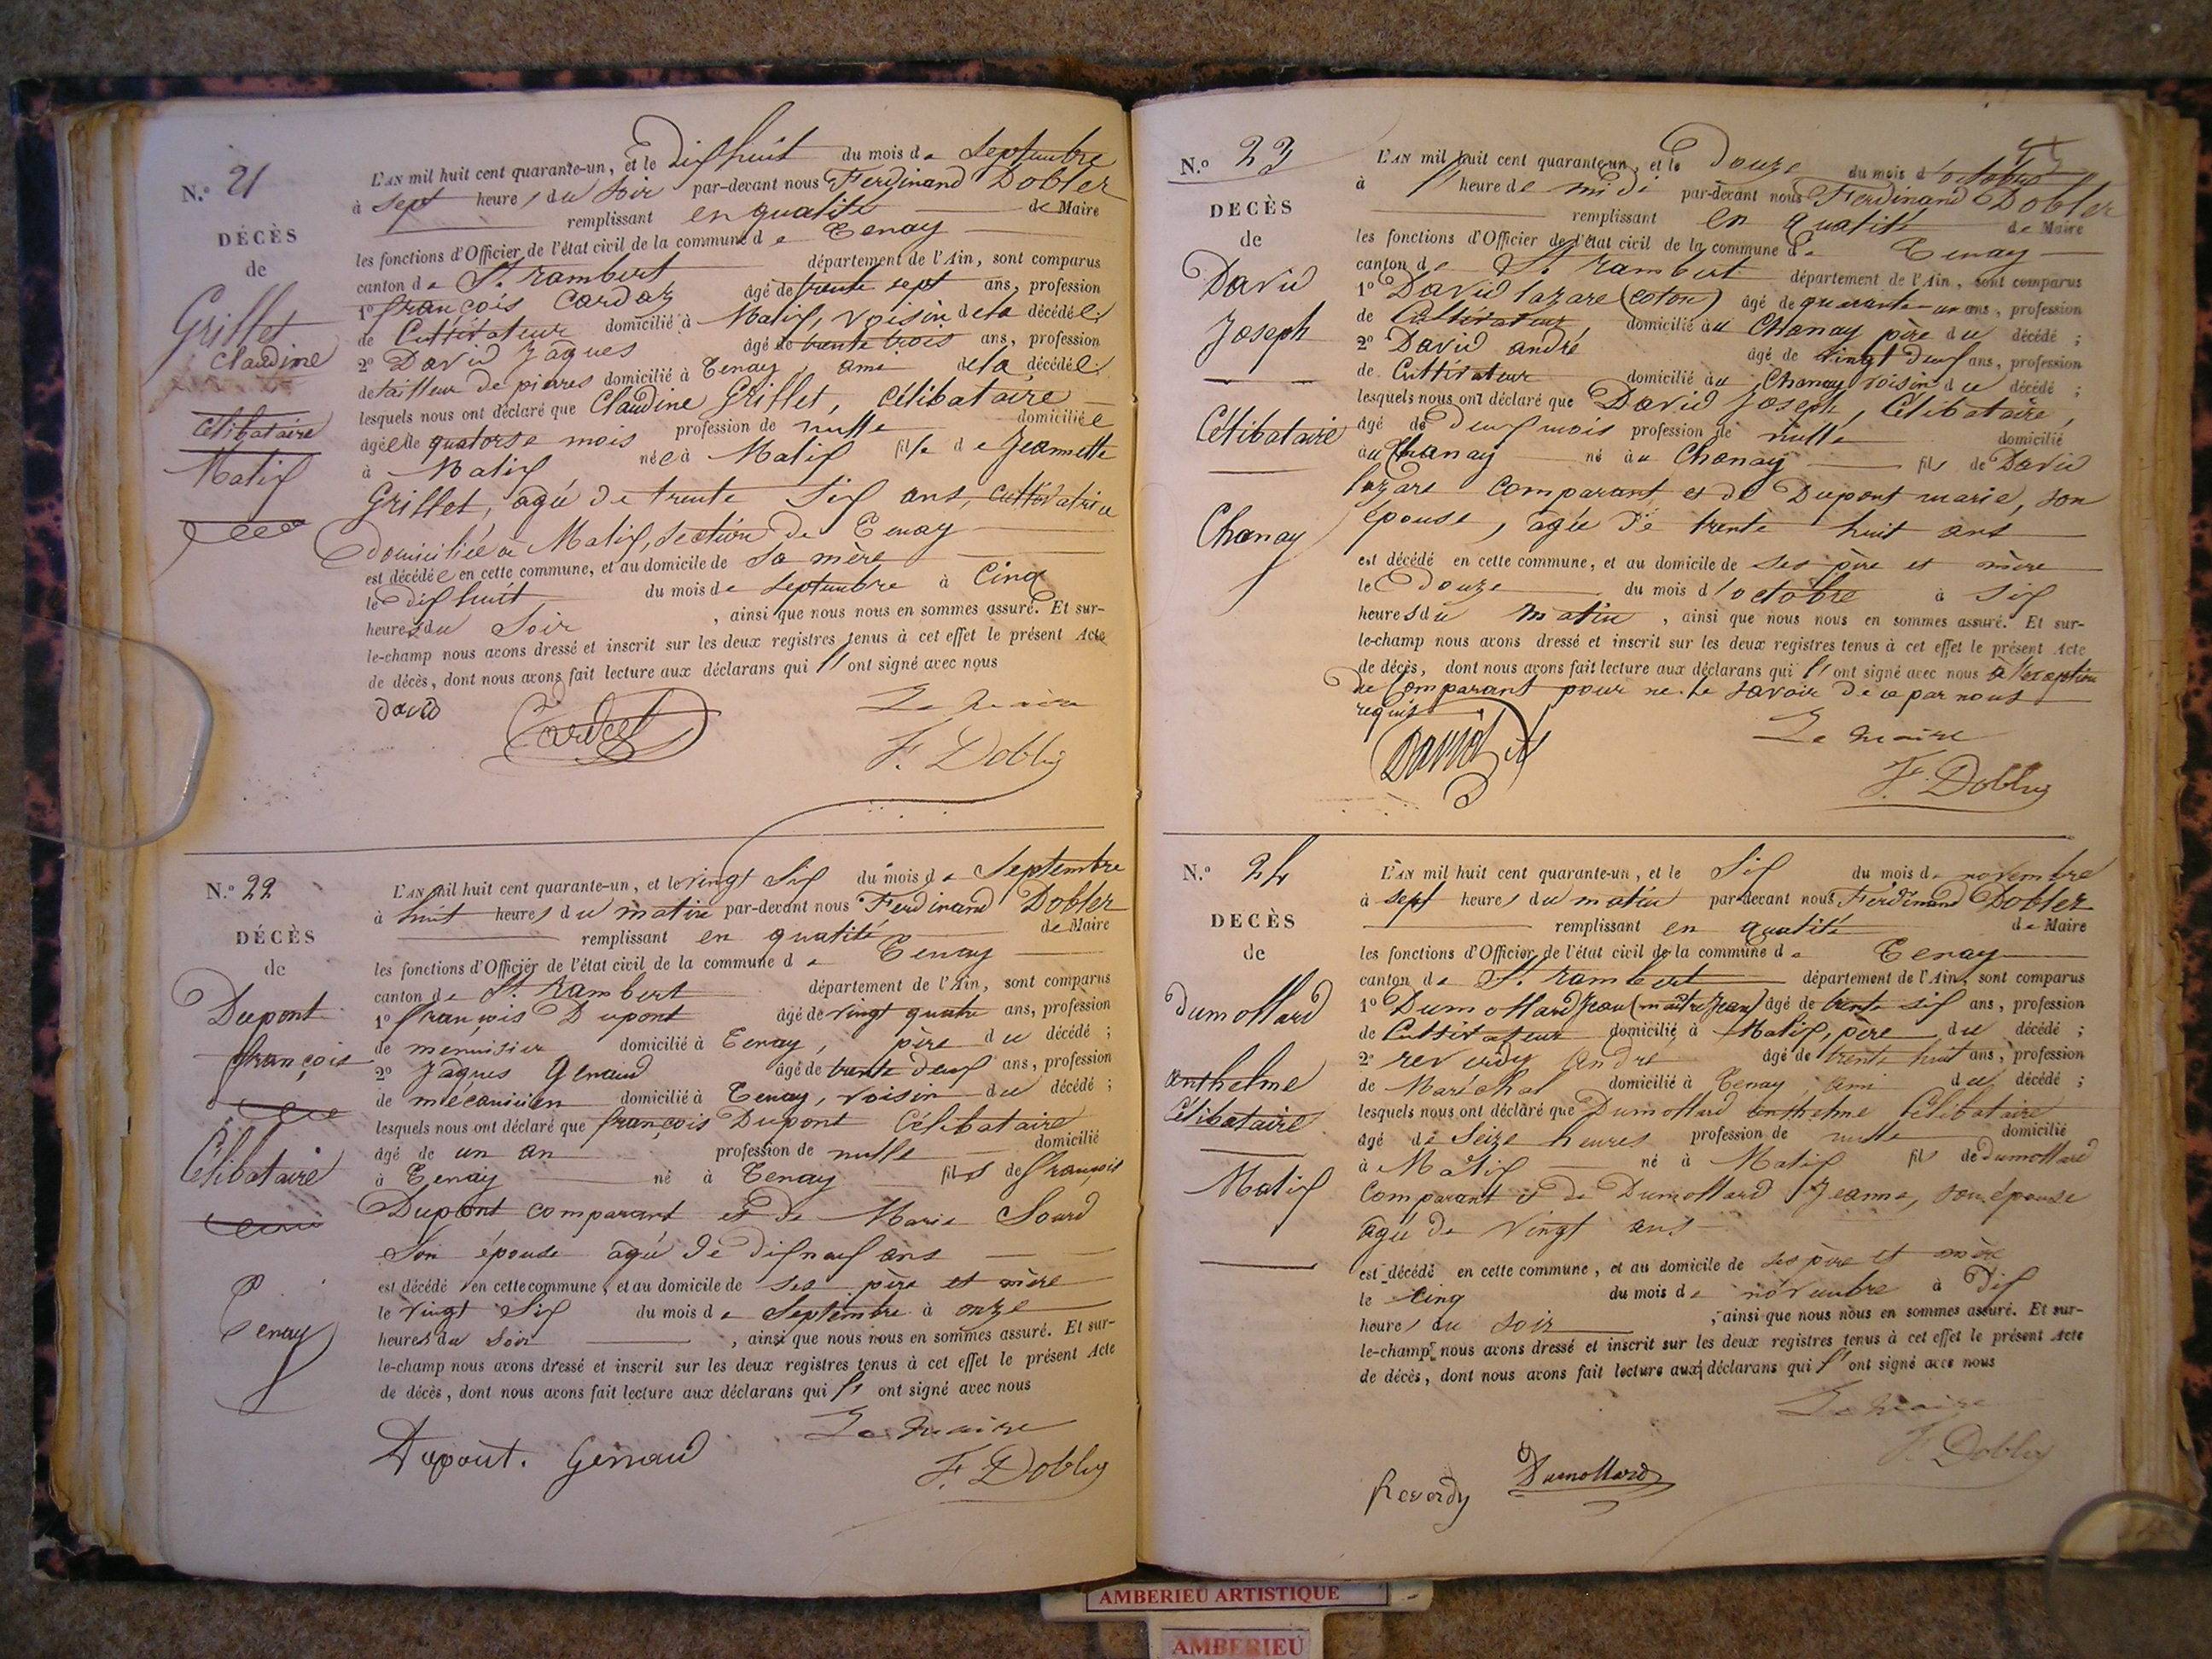 N.° 21
DÉCÈS
de
Grillet
Claudine
Célibataire
Matix
L'AN mil huit cent quarante-un, et le dix huit du mois de Septembre
à sept heures du soir par-devant nous Ferdinand Dobler
remplissant en qualité de Maire
les fonctions d'Officier de l'état civil de la commune de Tenay
canton de St. rambert département de l'Ain, sont comparus
1° françois Cardoz âgé de trente sept ans, profession
de Cultivateur domicilié à Matix, voisin de la décédée;
2° David Jâques âgé de trente trois ans, profession
de tailleur de pierres domicilié à Tenay, ami de la décédée;
lesquels nous ont déclaré que Claudine Grillet, Célibataire
âgée de quatorse mois profession de nulle domiciliée
à Matix née à Matix fille de Jeannette
Grillet, agée de trente Six ans, Cultivatrice
Domiciliée à Matix, section de Tenay
est décédée en cette commune, et au domicile de sa mère
le Dix huit du mois de septembre à Cinq
heures du Soir, ainsi que nous nous en sommes assuré. Et sur-
le-champ nous avons dressé et inscrit sur les deux registres tenus à cet effet le présent Acte
de décès, dont nous avons fait lecture aux déclarans qui l' ont signé avec nous
David Le maire
F. Dobler
N.° 22
DÉCÈS
de
Dupont
françois
Célibataire
Tenay
L'AN mil huit cent quarante-un, et le vingt Six du mois de Septembre
à huit heures du matin par-devant nous Ferdinand Dobler
remplissant en qualité de Maire
les fonctions d'Officier de l'état civil de la commune de Tenay
canton de St. rambert département de l'Ain, sont comparus
1° françois Dupont âgé de vingt quatre ans, profession
de menuisier domicilié à Tenay, père du décédé;
2° Jâques Genaud âgé de trente deux ans, profession
de mécanicien domicilié à Tenay, voisin du décédé;
lesquels nous ont déclaré que françois Dupont Célibataire
âgé de un an profession de nulle domicilié
à Tenay né à Tenay fils de françois
Dupont comparant et de Marie Sourd
Son épouse agée de dix neuf ans
est décédé en cette commune, et au domicile de ses père et mère
le vingt Six du mois de Septembre à onze
heures du Soir, ainsi que nous nous en sommes assuré. Et sur-
le-champ nous avons dressé et inscrit sur les deux registres tenus à cet effet le présent Acte
de décès, dont nous avons fait lecture aux déclarans qui l' ont signé avec nous
Le maire
Dupont. F. Dobler
N.° 23
DECÈS
de
David
Joseph
Célibataire
Chanay
L'AN mil huit cent quarante-un, et le Douze du mois d'octobre
à heure de midi par-devant nous Ferdinand Dobler
remplissant en qualité de Maire
les fonctions d'Officier de l'état civil de la commune de Tenay
canton de St. rambert département de l'Ain, sont comparus
1° David lazare (coton) âgé de quarante un ans, profession
de Cultivateur, domicilié au Chanay père du décédé;
2° David andré âgé de vingt deux ans, profession
de Cultivateur domicilié au Chanay voisin du décédé;
lesquels nous ont déclaré que David Joseph, Célibataire,
âgé de deux mois profession de nulle domicilié
au Chanay né au Chanay fils de David
lazare comparant et de Dupont marie, son
épouse, agée de trente huit ans
est décédé en cette commune, et au domicile de ses père et mère
le Douze du mois d'octobre à six
heures du matin, ainsi que nous nous en sommes assuré. Et sur-
le-champ nous avons dressé et inscrit sur les deux registres tenus à cet effet le présent Acte
de décès, dont nous avons fait lecture aux déclarans qui l' ont signé avec nous à l'exception
du Comparant pour ne le savoir de ce par nous
requis
Le maire
David A F. Dobler
N.° 24
DECÈS
de
Dumollard
anthelme
Célibataire
Matix
L'AN mil huit cent quarante-un, et le Six du mois de novembre
à sept heures du matin par-devant nous Ferdinand Dobler
remplissant en qualité de Maire
les fonctions d'Officier de l'état civil de la commune de Tenay
canton de St. rambert département de l'Ain, sont comparus
1° Dumollard Jean (maître Jean) âgé de trente six ans, profession
de Cultivateur domicilié à Matix, père du décédé;
2° reverdy André âgé de trente huit ans, profession
de Maréchal domicilié à Tenay ami du décédé;
lesquels nous ont déclaré que Dumollard anthelme Célibataire
âgé de Seize heures profession de nulle domicilié
à Matix né à Matix fils de dumollard
Comparant et de Dumollard Jeanne, son épouse
agée de vingt ans
est décédé en cette commune, et au domicile de ses père et mère
le cinq du mois de novembre à Dix
heures du soir, ainsi que nous nous en sommes assuré. Et sur-
le-champ nous avons dressé et inscrit sur les deux registres tenus à cet effet le présent Acte
de décès, dont nous avons fait lecture aux déclarans qui l' ont signé avec nous
Le maire
F. Dobler
Reverdy Dumollard
AMBERIEU ARTISTIQUE
AMBERIEU